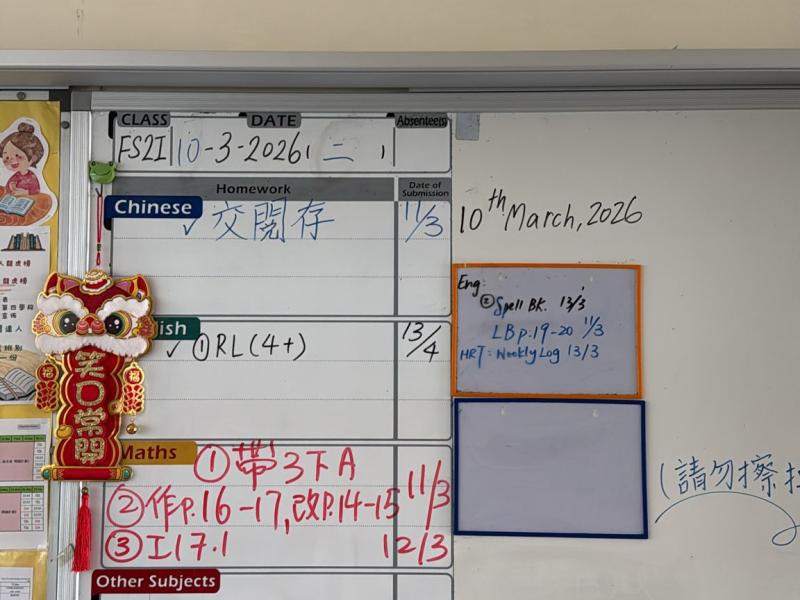 CLASS DATE Absentee(s)
FS2I 10-3-2026, 二 ,
Homework Date of Submission
Chinese
✓交閱存 11/3
10th March, 2026
Eng:
② Spell BK. 13/3
LB p.19-20 11/3
HRT: Weekly Log 13/3
ish
✓ ①RL(4+) 13/4
笑口常開
福 福
Maths ①帶3下A
②作p.16-17,改P.14-15 11/3
③工17.1 12/3
(請勿擦
Other Subjects